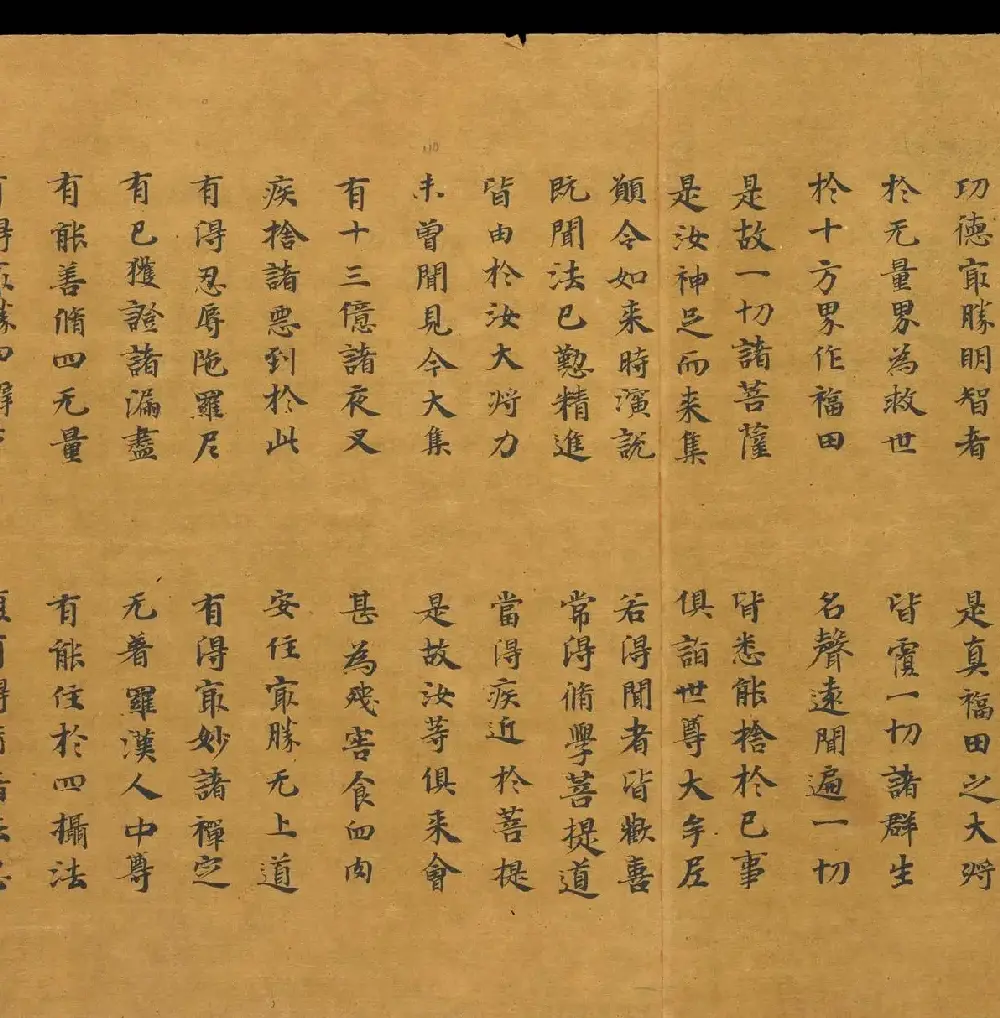 功德㝡勝明智者　是真福田之大将
於无量界為救世　皆覆一切諸群生
於十方界作福田　名聲遠聞遍一切
是故一切諸菩薩　皆悉能捨於已事
是汝神足而来集　俱詣世尊大牟尼
願令如来時演說　若得聞者皆歡喜
既聞法已懃精進　常得脩學菩提道
皆由於汝大将力　當得疾近於菩提
未曾聞見今大集　是故汝等俱来會
有十三億諸夜叉　甚為殘害食血肉
疾捨諸惡到於此　安住㝡勝无上道
有得忍辱陁羅尼　有得㝡妙諸禪定
有已獲證諸漏盡　无著羅漢人中尊
有能善脩四无量　有能住於四攝法
有得㝡勝四